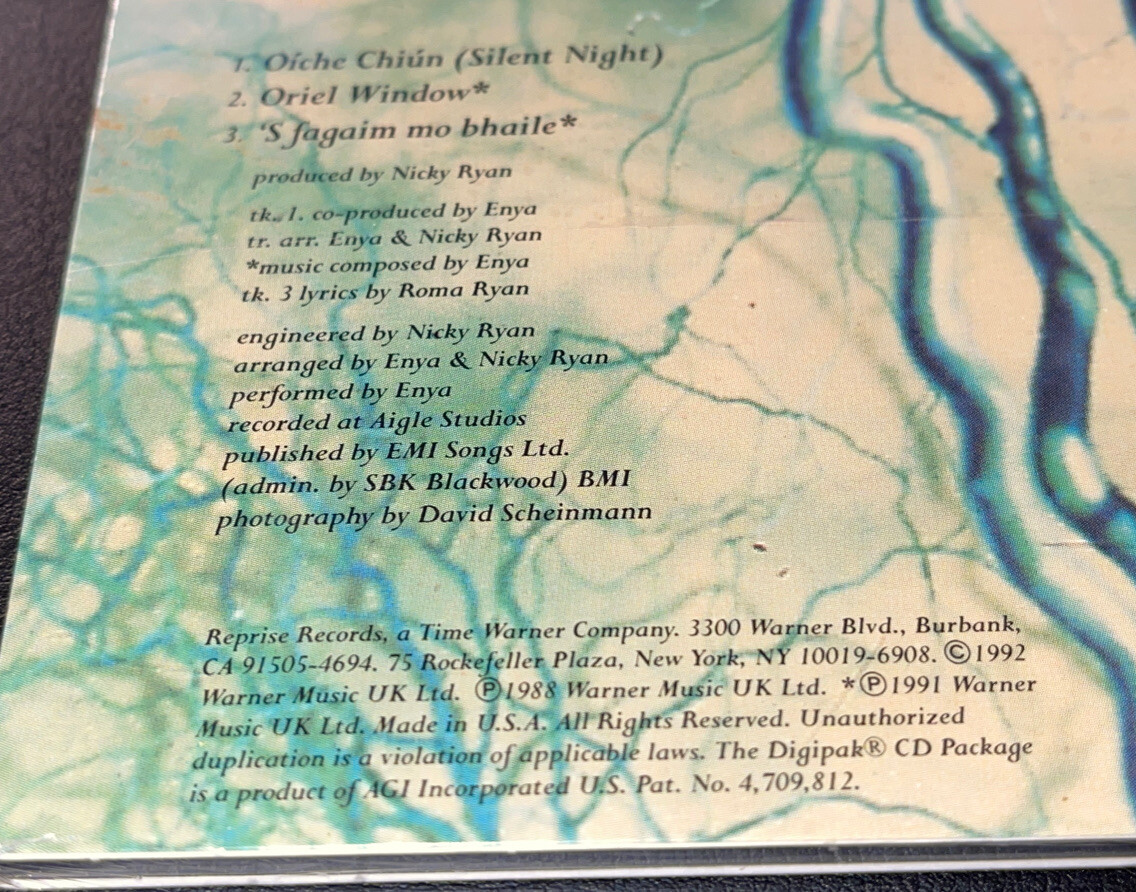 1. Oíche Chiún (Silent Night)
2. Oriel Window*
3. 'S fagaim mo bhaile*
produced by Nicky Ryan
tk. 1. co-produced by Enya
tr. arr. Enya & Nicky Ryan
*music composed by Enya
tk. 3 lyrics by Roma Ryan
engineered by Nicky Ryan
arranged by Enya & Nicky Ryan
performed by Enya
recorded at Aigle Studios
published by EMI Songs Ltd.
(admin. by SBK Blackwood) BMI
photography by David Scheinmann
Reprise Records, a Time Warner Company. 3300 Warner Blvd., Burbank,
CA 91505-4694. 75 Rockefeller Plaza, New York, NY 10019-6908. ©1992
Warner Music UK Ltd. ℗1988 Warner Music UK Ltd. *℗1991 Warner
Music UK Ltd. Made in U.S.A. All Rights Reserved. Unauthorized
duplication is a violation of applicable laws. The Digipak® CD Package
is a product of AGI Incorporated U.S. Pat. No. 4,709,812.